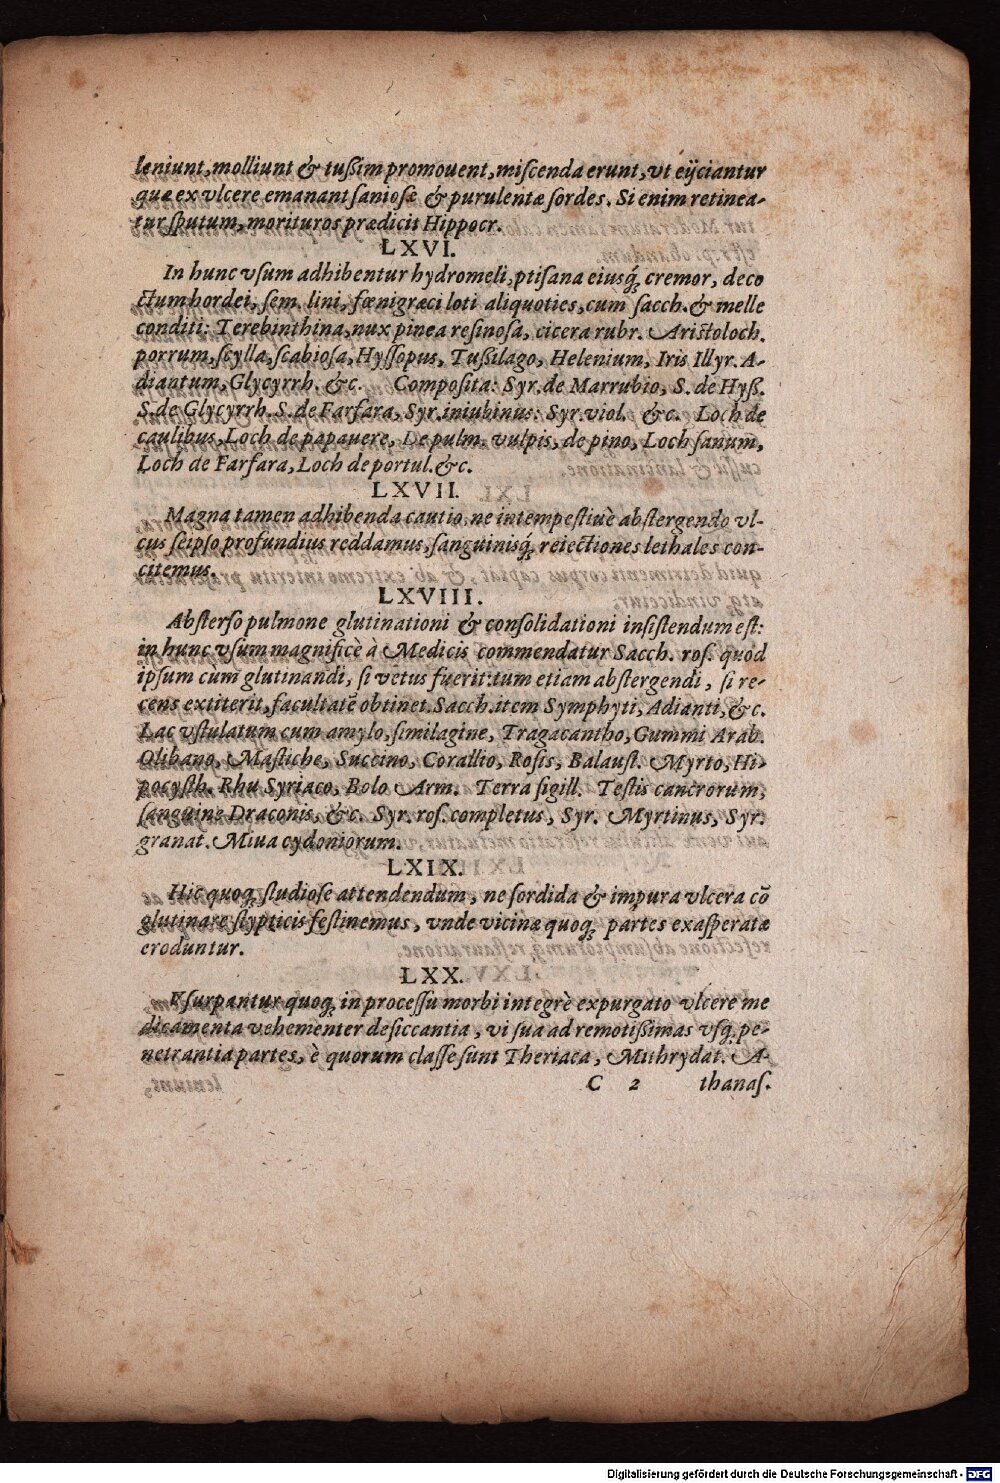 leniunt, molliunt & tußim promouent, miſcenda erunt, vt eÿciantur
quæ ex vlcere emanant ſanioſæ & purulentæ ſordes. Si enim retinea-
tur ſputum, morituros prædicit Hippocr.
LXVI.
In hunc vſum adhibentur hydromeli, ptiſana eiusq́; cremor, deco
ctum hordei, ſem. lini, fœnigræci loti aliquoties, cum ſacch. & melle
conditi: Terebinthina, nux pinea reſinoſa, cicera rubr. Ariſtoloch.
porrum, ſcylla, ſcabioſa, Hyſſopus, Tußilago, Helenium, Iris Illyr. A-
diantum, Glycyrrh. &c. Compoſita: Syr. de Marrubio, S. de Hyß.
S. de Glycyrrh. S. de Farfara, Syr. iniubinus: Syr. viol. &c. Loch de
caulibus, Loch de papauere, De pulm. vulpis, de pino, Loch ſanum,
Loch de Farfara, Loch de portul. &c.
LXVII.
Magna tamen adhibenda cautio, ne intempeſtiuè abſtergendo vl-
cus ſeipſo profundius reddamus, ſanguinisq́; reiectiones lethales con-
citemus.
LXVIII.
Abſterſo pulmone glutinationi & conſolidationi inſiſtendum eſt:
in hunc vſum magnificè à Medicis commendatur Sacch. roſ. quod
ipſum cùm glutinandi, ſi vetus fuerit: tum etiam abſtergendi, ſi re-
cens extiterit, facultatē obtinet. Sacch. item Symphyti, Adianti, &c.
Lac vſtulatum cum amylo, ſimilagine, Tragacantho, Gummi Arab.
Olibano, Maſtiche, Succino, Corallio, Roſis, Balauſt. Myrto, Hi-
pocyſth. Rhu Syriaco, Bolo Arm. Terra ſigill. Teſtis cancrorum,
ſanguine Draconis, &c. Syr. roſ. completus, Syr. Myrtinus, Syr.
granat. Miua cydoniorum.
LXIX.
Hic quoq; ſtudioſe attendendum, ne ſordida & impura vlcera cō
glutinare ſtypticis feſtinemus, vnde vicinæ quoq; partes exaſperatæ
eroduntur.
LXX.
Vſurpantur quoq; in proceſſu morbi integrè expurgato vlcere me
dicamenta vehementer deſiccantia, vi ſua ad remotißimas vſq; pe-
netrantia partes, è quorum claſſe ſunt Theriaca, Mithrydat. A-
C 2 thanaſ.
Digitalisierung gefördert durch die Deutsche Forschungsgemeinschaft - DFG